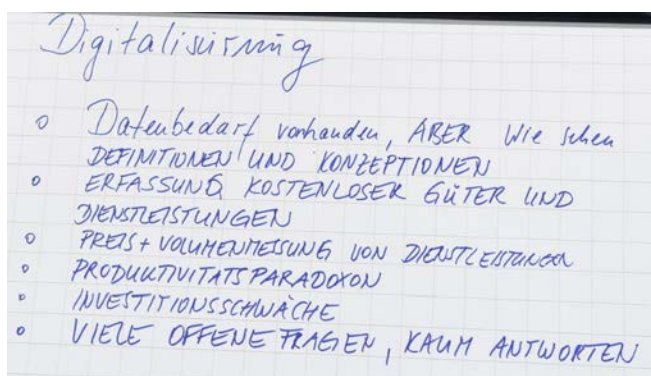 Digitalisierung
o Datenbedarf vorhanden, ABER Wie sehen
DEFINITIONEN UND KONZEPTIONEN
o ERFASSUNG KOSTENLOSER GÜTER UND
DIENSTLEISTUNGEN
o PREIS + VOLUMENMESSUNG VON DIENSTLEISTUNGEN
o PRODUKTIVITÄTSPARADOXON
o INVESTITIONSSCHWÄCHE
o VIELE OFFENE FRAGEN, KAUM ANTWORTEN